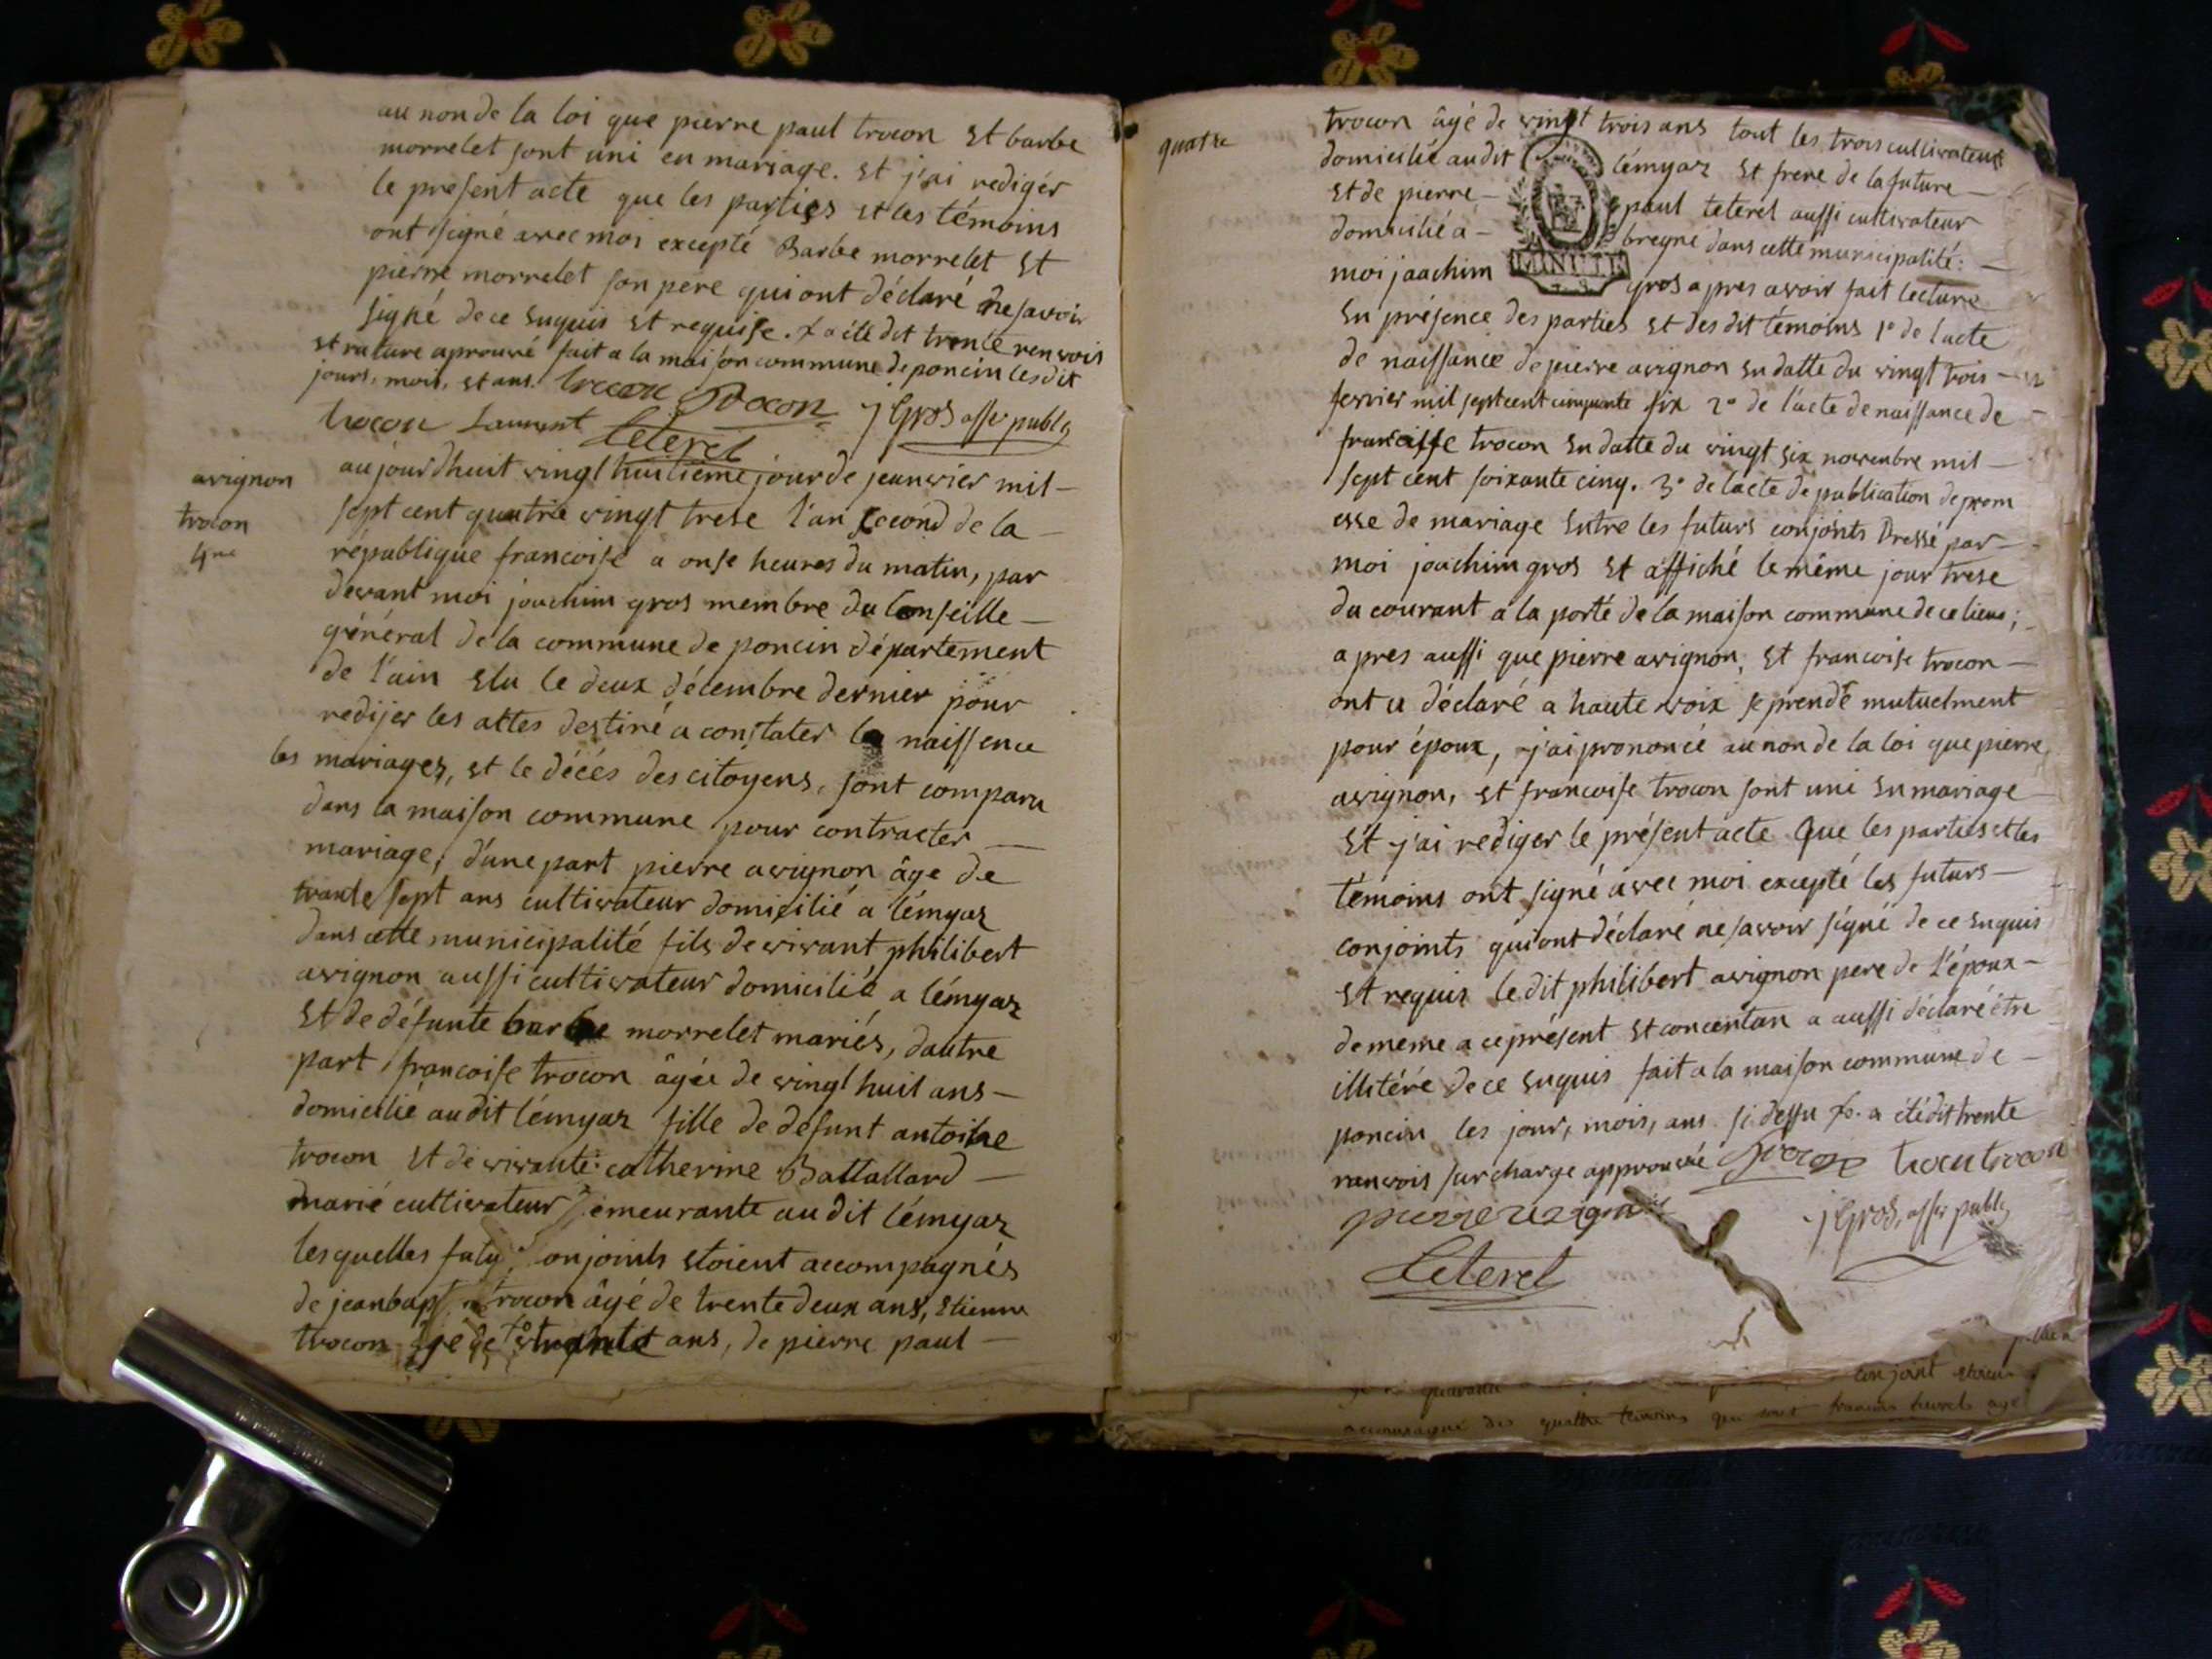 au non de la loi que pierre paul trocon et barbe
morrelet sont uni en mariage. et j'ai redigér
le present acte que les parties et les témoins
ont signé avec moi excepté Barbe morrelet et
pierre morrelet son pere qui ont déclaré ne savoir
signé de ce enquis et requise. a été dit trente renvois
et rature aprouvé fait a la maison commune de poncin les dit
jours, mois, et ans. trocon trocon
trocon Laurent Leterel j Gros offer public
avignon
trocon
4me
aujourd'huit vingt huitieme jour de jeanvier mil
sept cent quatre vingt trese l'an second de la
république francoise a onse heures du matin, par
devant moi joachim gros membre du Conseille
général de la commune de poncin département
de l'ain elu le deux décembre dernier pour
redijer les attes destiné a constater la naissence
les mariages, et le décés des citoyens, sont comparu
dans la maison commune pour contracter
mariage, d'une part pierre avignon âge de
trante sept ans cultivateur domicilié a lémyaz
dans cette municipalité fils de vivant philibert
avignon aussi cultivateur domicilié a lémyaz
et de défunte barbe morrelet mariés, dautre
part francoise trocon âgée de vingt huit ans
domicilié au dit lémyaz fille de defunt antoine
trocon et de vivante catherine Battallard
marié cultivateur demeurante au dit lémyaz
lesquelles futurs conjoints etoient accompagnés
de jean bapt trocon âgé de trente deux ans, etienne
trocon âge de ans, de pierre paul
quatre
trocon âgé de vingt trois ans tout les trois cultivateurs
domicilié au dit lémyaz et frere de la future
et de pierre paul leterel aussi cultivateur
domicilié a bregne dans cette municipalité:
MINUTE
moi jaachim gros apres avoir fait lecture
en présence des parties et des dit témoins 1° de l'acte
de naissance de pierre avignon en datte du vingt trois
fevrier mil sept cent cinquante six 2° de l'acte de naissance de
francoise trocon en datte du vingt six novembre mil
sept cent soixante cinq. 3° de lacte de publication de prom
esse de mariage entre les futurs conjoints Dressé par
moi joachim gros et affiché le même jour trese
du courant a la porté de la maison commune de ce lieu;
apres aussi que pierre avignon, et francoise trocon
ont u déclaré a haute voix se prendé mutuelment
pour époux, j'ai prononcé au non de la loi que pierre
avignon, et francoise trocon sont uni en mariage
et j'ai rediger le présent acte que les parties et les
témoins ont signé avec moi excepté les futurs
conjoints qui ont déclaré ne savoir signé de ce enquis
et requis le dit philibert avignon pere de l'époux
de meme a ce présent et concentan a aussi déclaré étre
illitéré de ce enquis fait a la maison commune de
poncin les jour, mois, ans si dessu a été dit trente
ranvois surcharge approuvé trocon trocon trocon
j Gros, offer public
Leterel
conjoint
accompagné des quattre temoins qui sont francois age